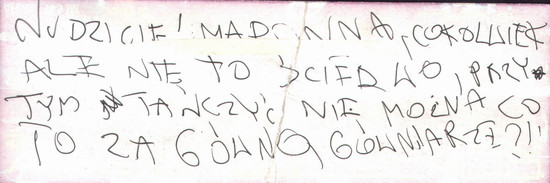 NUDZICIE! MADONNA, COKOLWIEK
ALE NIE TO ŚCIERWO, PRZY
TYM TAŃCZYĆ NIE MOŻNA CO
TO ZA GÓWNO GÓWNIARZE?!!